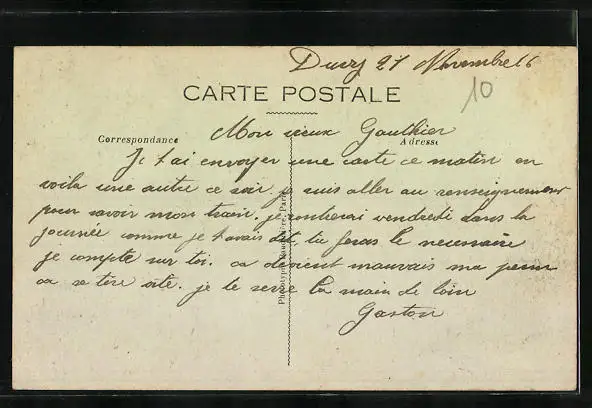 Ducy 21 Novembre 16
10
CARTE POSTALE
Correspondance
Adresse
Mon vieux Gauthier
Je t'ai envoyer une carte ce matin en
voila une autre ce soir. je suis aller au renseignement
pour savoir mon train. je rentrerai vendredi dans la
journée comme je t'avais dit tu feras le necessaire
je compte sur toi. ca devient mauvais ma
ca se tire vite. je te serre la main de loin
Gaston
Phototypie Baudinière, Paris